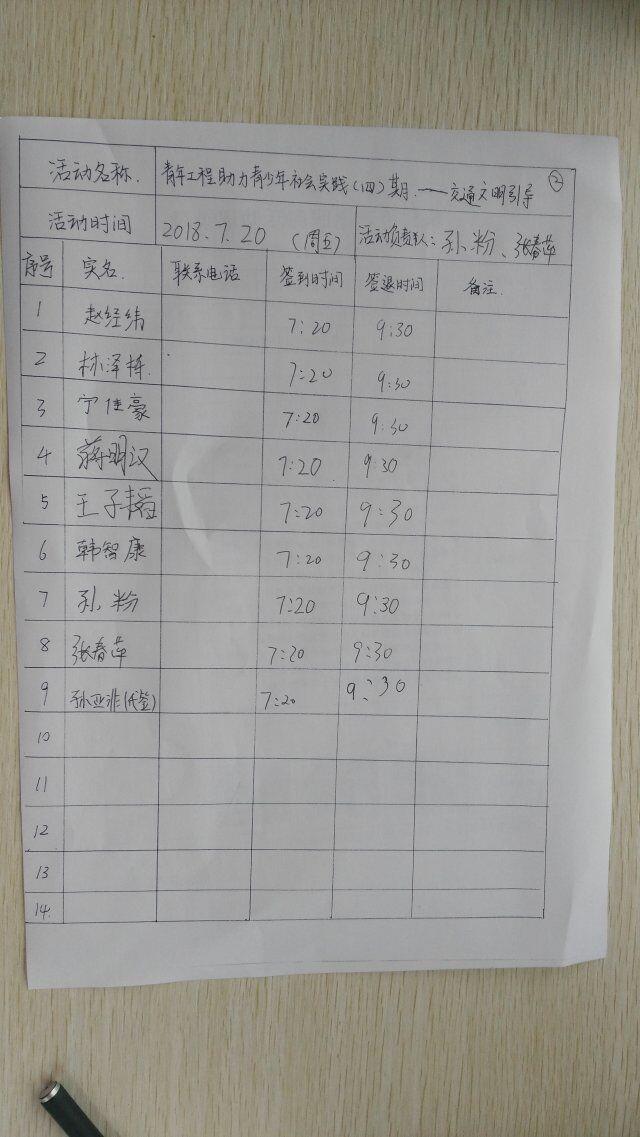 活动名称. 青年工程助力青少年社会实践(四)期.——交通文明引导 ②
活动时间 2018.7.20 (周五) 活动负责人: 孙粉、张春萍
序号 实名. 联系电话 签到时间 签退时间 备注.
1 赵经纬 7:20 9:30
2 林泽 7:20 9:30
3 宁佳豪 7:20 9:30
4 蒋明汉 7:20 9:30
5 王子韬 7:20 9:30
6 韩智康 7:20 9:30
7 孙粉 7:20 9:30
8 张春萍 7:20 9:30
9 孙亚非(代签) 7:20 9:30
10
11
12
13
14.